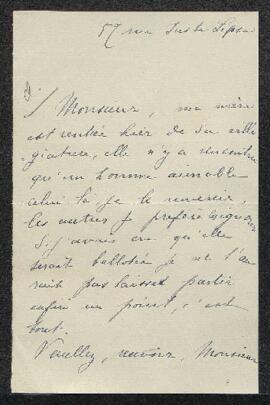 57 rue Juste Lipse
Monsieur, ma mère
est rentrée hier de sa villé
giature, elle n'y a rencontré
qu'un homme aimable
celui là je le remercie,
les autres je préfère ignorer
Si j'avais cru qu'elle
serait ballotée je ne l'au
rais pas laissée partir
enfin un point, c'est
tout.
Veuillez, recevoir, Monsieur